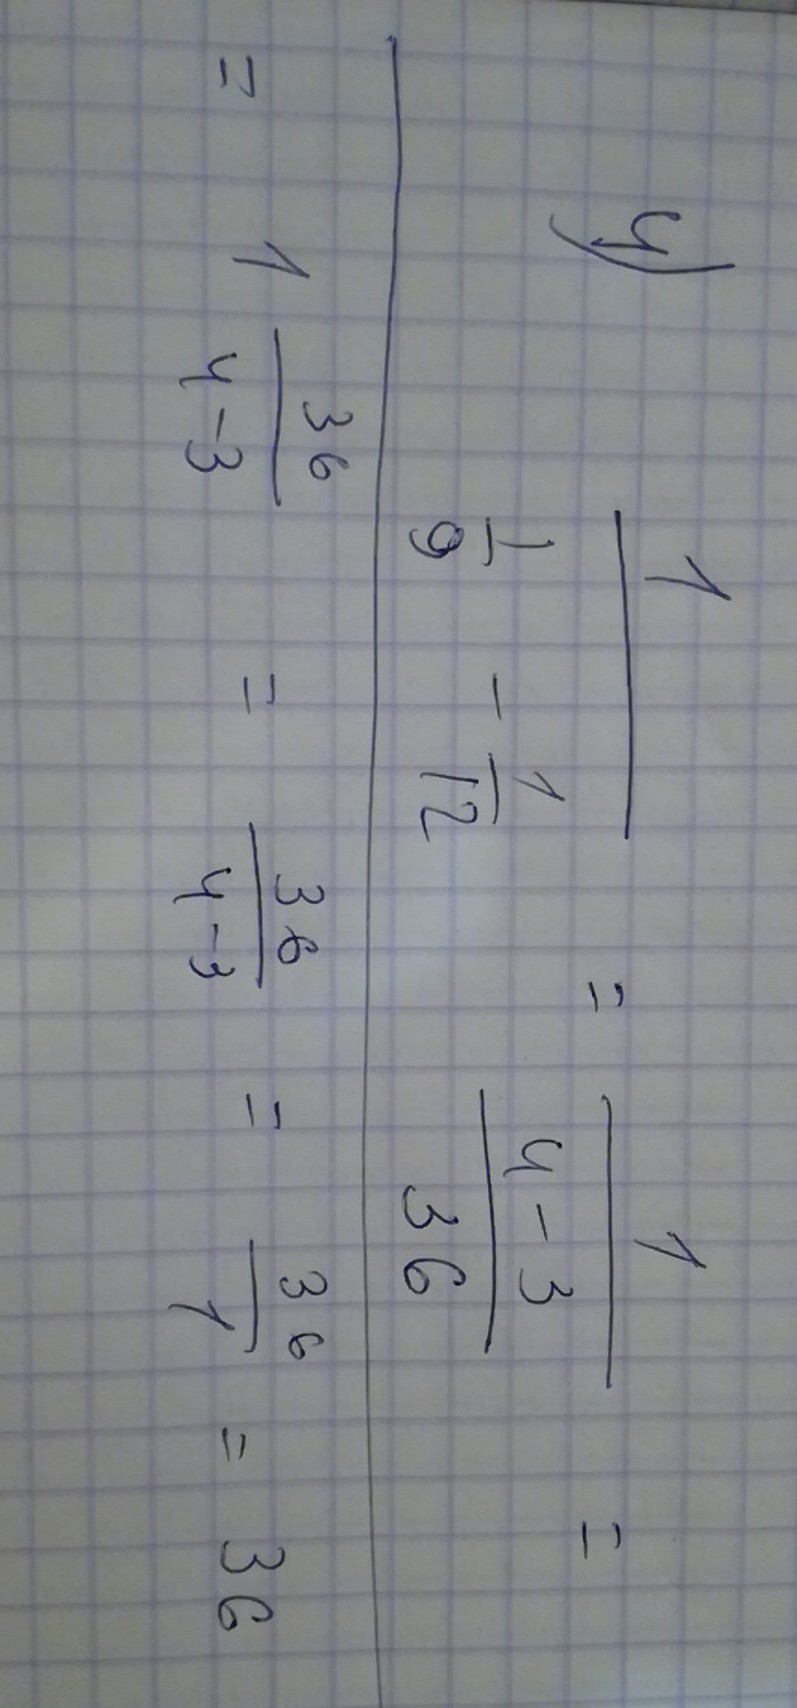 4) 1/(1/9 - 1/12) = 1/((4-3)/36) =
= 1 36/(4-3) = 36/(4-3) = 36/1 = 36